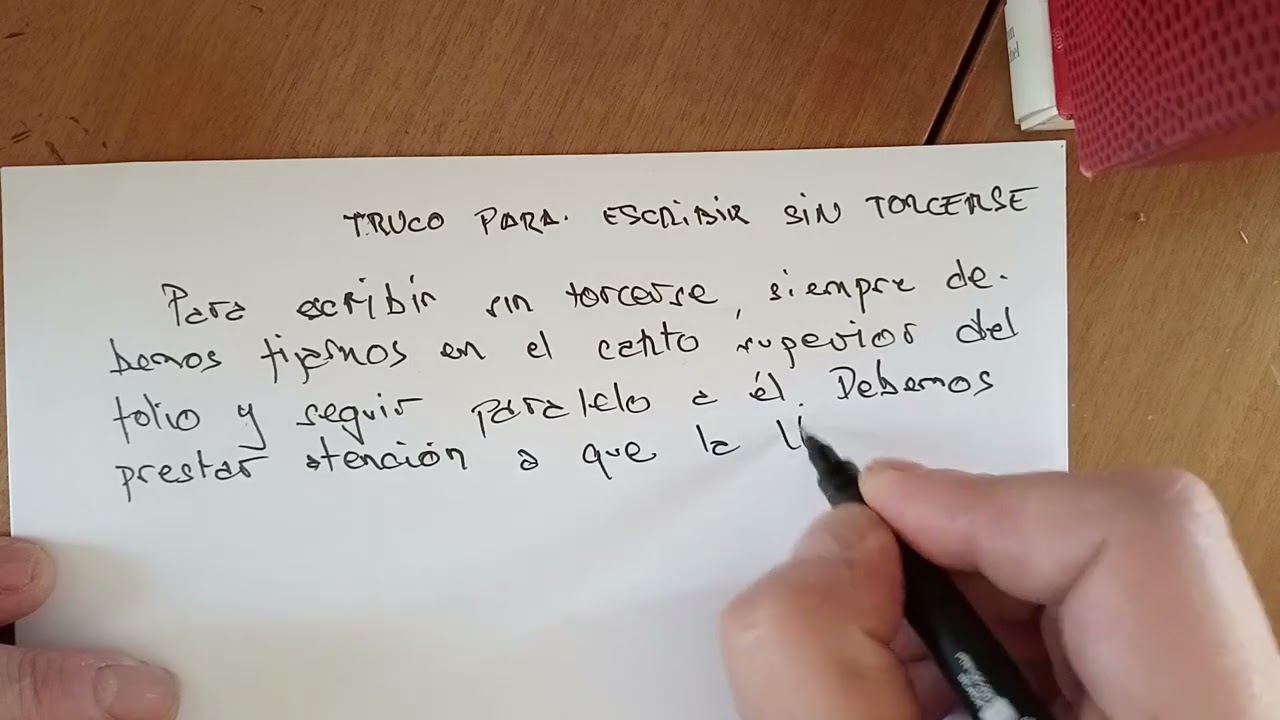 TRUCO PARA. ESCRIBIR SIN TORCERSE
Para escribir sin torcerse, siempre de-
bemos fijarnos en el canto superior del
folio y seguir paralelo a él. Debemos
prestar atención a que la lí